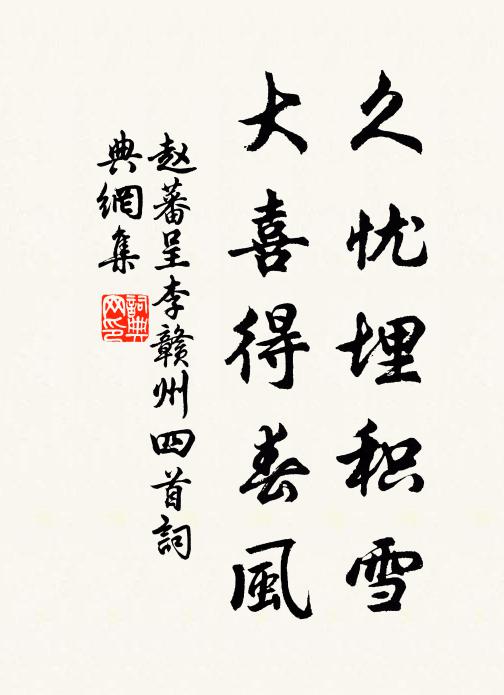 久忧埋积雪
大喜得春風
赵蕃呈李赣州四首詞
典網集
詞典网印